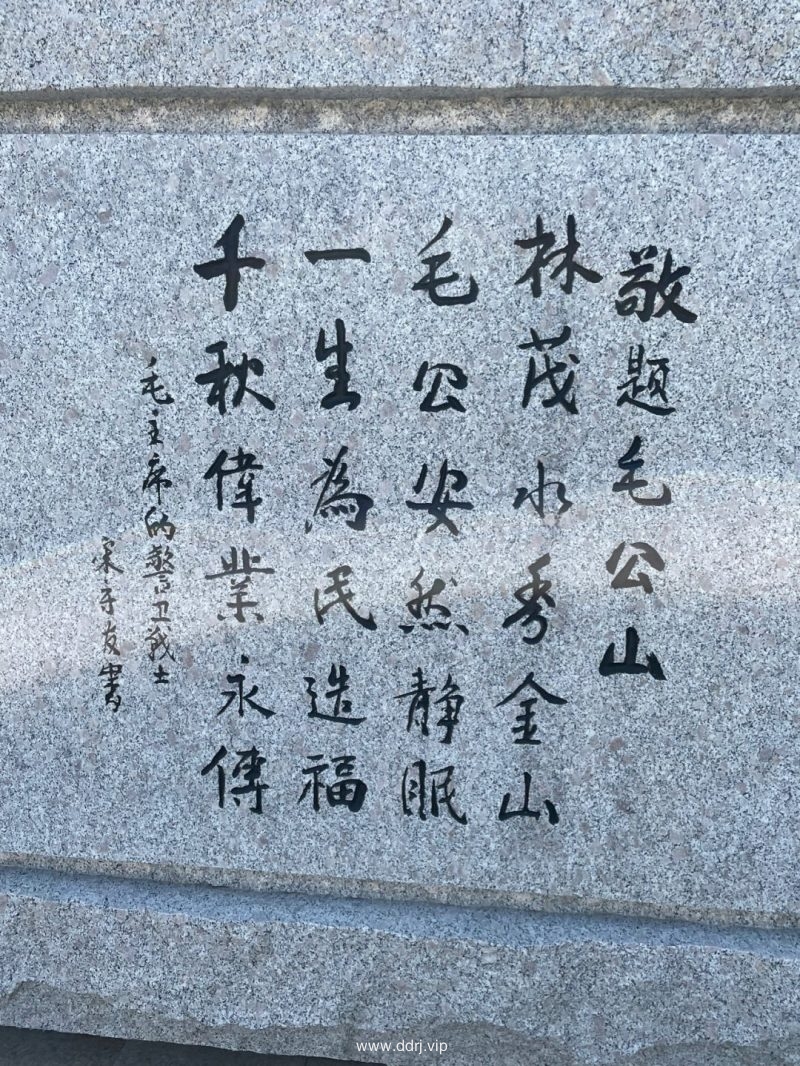 敬题毛公山
林茂水秀金山
毛公安然静眠
一生為民造福
千秋偉業永傳
毛主席的警卫战士
宋子友書
www.ddrj.vip